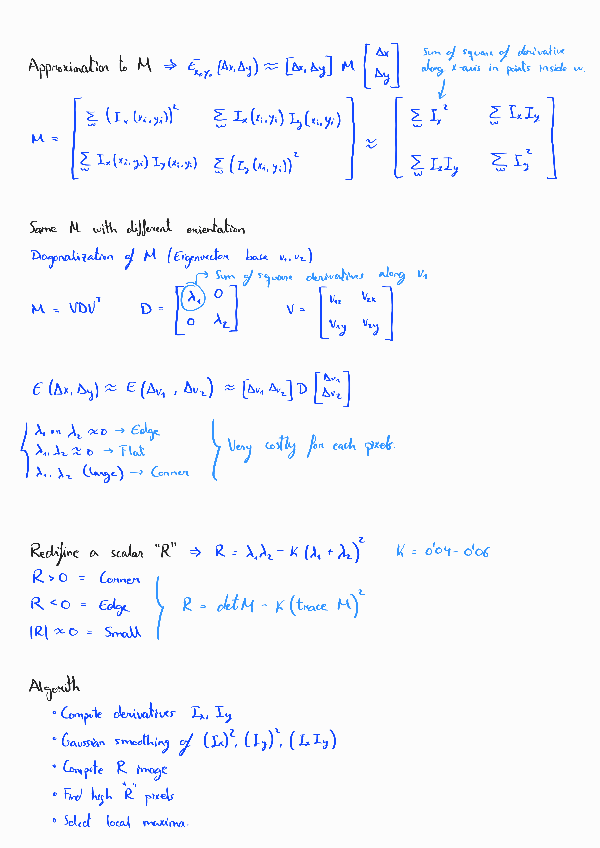 Approximation to M ⇒ E_{x₀,y₀} (Δx, Δy) ≈ [Δx, Δy] M [Δx Δy]
Sum of square of derivative
along x-axis in points inside w.
M = [ Σ_w (I_x (x_i, y_i))²  Σ_w I_x (x_i, y_i) I_y (x_i, y_i) ; Σ_w I_x (x_i, y_i) I_y (x_i, y_i)  Σ_w (I_y (x_i, y_i))² ] ≈ [ Σ_w I_x²  Σ_w I_x I_y ; Σ_w I_x I_y  Σ_w I_y² ]
Same M with different orientation
Diagonalization of M (Eigenvector base v₁, v₂)
Sum of square derivatives along v₁
M = VDVᵀ  D = [ λ₁ 0 ; 0 λ₂ ]  V = [ v₁ₓ v₂ₓ ; v₁y v₂y ]
E (Δx, Δy) ≈ E (Δv₁, Δv₂) ≈ [Δv₁ Δv₂] D [Δv₁ Δv₂]
λ₁ or λ₂ ≈ 0 → Edge
λ₁, λ₂ ≈ 0 → Flat
λ₁, λ₂ (Large) → Corner
Very costly for each pixels.
Redifine a scalar "R" ⇒ R = λ₁λ₂ - K (λ₁ + λ₂)²  K = 0'04 - 0'06
R > 0 = Corner
R < 0 = Edge
|R| ≈ 0 = Small
R = det M - K (trace M)²
Algorith
• Compute derivatives I_x, I_y
• Gaussian smoothing of (I_x)², (I_y)², (I_x I_y)
• Compute R image
• Find high "R" pixels
• Select local maxima.